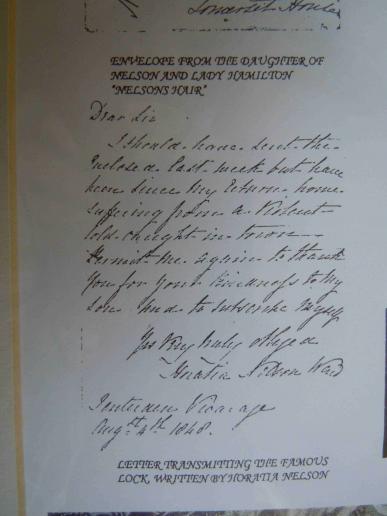 Somerset House
ENVELOPE FROM THE DAUGHTER OF
NELSON AND LADY HAMILTON
"NELSONS HAIR"
Dear Sir
I should have sent the
enclosed last week but have
been since my return home
suffering from a violent
cold caught in town
Permit me again to thank
you for your kindness to my
son and to subscribe myself
Yrs very truly obliged
Horatia Nelson Ward
Tenterden Vicarage
Augst 4th 1848.
LETTER TRANSMITTING THE FAMOUS
LOCK, WRITTEN BY HORATIA NELSON